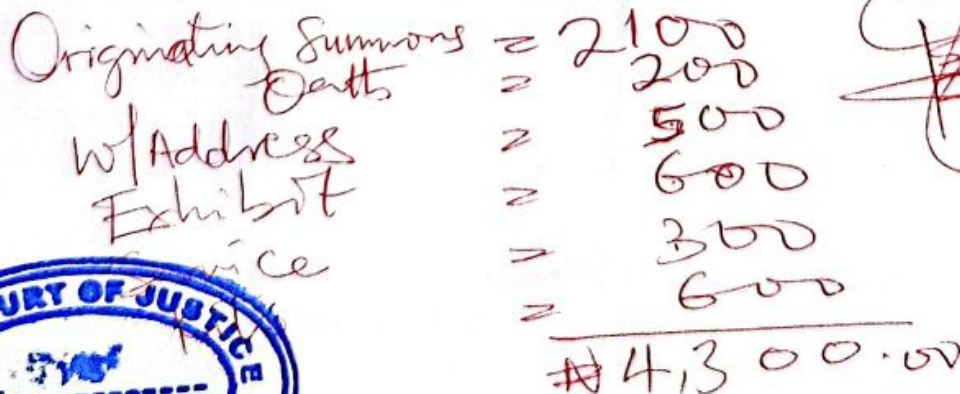 Originating Summons = 2100
Oath = 200
W/Address = 500
Exhibit = 600
Service = 300
= 600
₦4,300.00
URT OF JUSTICE